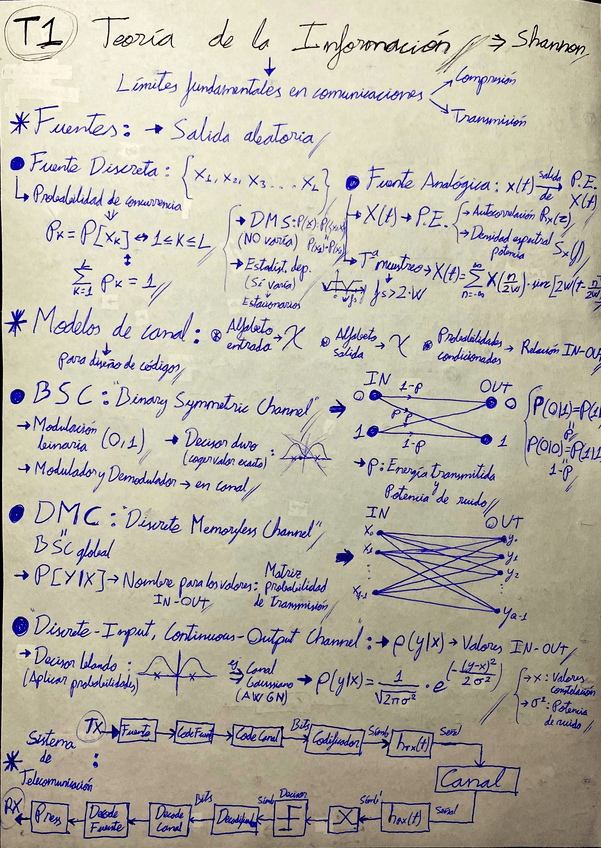 T1 Teoría de la Información => Shannon
Límites fundamentales en comunicaciones
Compresión
Transmisión
* Fuentes: → Salida aleatoria
• Fuente Discreta: {x1, x2, x3 ... xL}
→ Probabilidad de concurrencia
Pk = P[xk] ↔ 1 ≤ k ≤ L
∑ k=1 L Pk = 1
→ DMS:
(NO varía)
→ Estadist. dep.
(Sí varía)
Estacionarios
• Fuente Analógica: x(t) salida de → P.E. X(t)
→ X(t) → P.E.
→ Autocorrelación Rx(τ)
→ Densidad espectral potencia Sx(f)
→ Tª muestreo → X(t) = ∑ n=-∞ ∞ X(n/2W)
fs > 2·W
* Modelos de canal: • Alfabeto entrada → X • Alfabeto salida → • Probabilidades condicionadas → Relación IN-OUT
para diseño de códigos
• BSC: "Binary Symmetric Channel" =>
→ Modulación binaria (0,1) → Decisor duro
(coger valor exacto)
→ Modulador y Demodulador → en canal
IN OUT
0 1-p 0
p p
1 1-p 1
P(0|1)=P(1|
p
P(0|0)=P(1|1
1-p
→ p: Energía transmitida
y
Potencia de ruido
• DMC: "Discrete Memoryless Channel"
BSC global
→ P[Y|X] → Nombre para los valores: Matriz probabilidad de transmisión
IN-OUT
IN OUT
x0 y0
x1 y1
y2
xq-1 yQ-1
• Discrete-Input, Continuous-Output Channel: → p(y|x) → Valores IN-OUT
→ Decisor blando:
(Aplicar probabilidades)
Canal Gaussiano (AWGN)
→ p(y|x) = 1/√2πσ² · e^(-(y-x)²/2σ²)
→ x: Valores constelación
→ σ²: Potencia de ruido
* Sistema de Telecomunicación:
TX Fuente Code Fuent Code Canal Bits Codificador Símb hTX(t) Señal
Canal
RX Press Decode Fuente Decode Canal Bits Decodificador Símb Decisor Símb' hRX(t) Señal